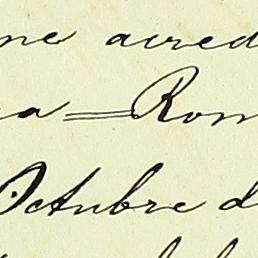 ne acred
a = Rom
Octubre d